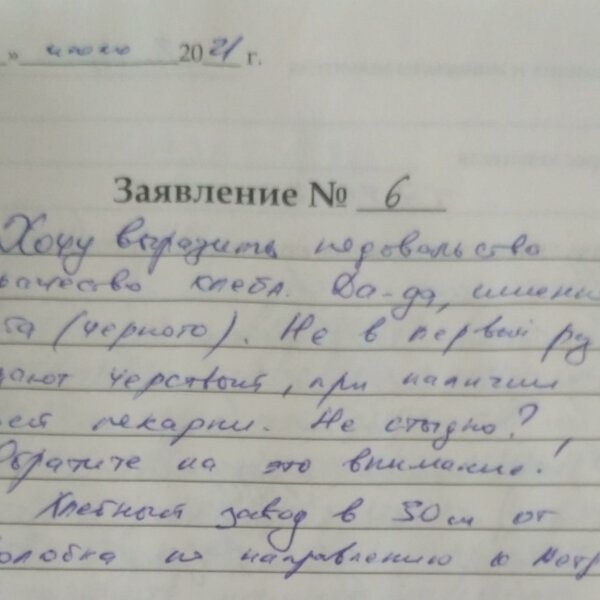 » июлю 2021 г.
Заявление № 6
Хочу выразить недовольство
качество хлеба. Да-да, именно
та (черного). Не в первый раз
дают черствый, при наличии
ей пекарни. Не стыдно?
Обратите на это внимание!
Хлебный завод в 50 м от
Колобка по направлению к метр